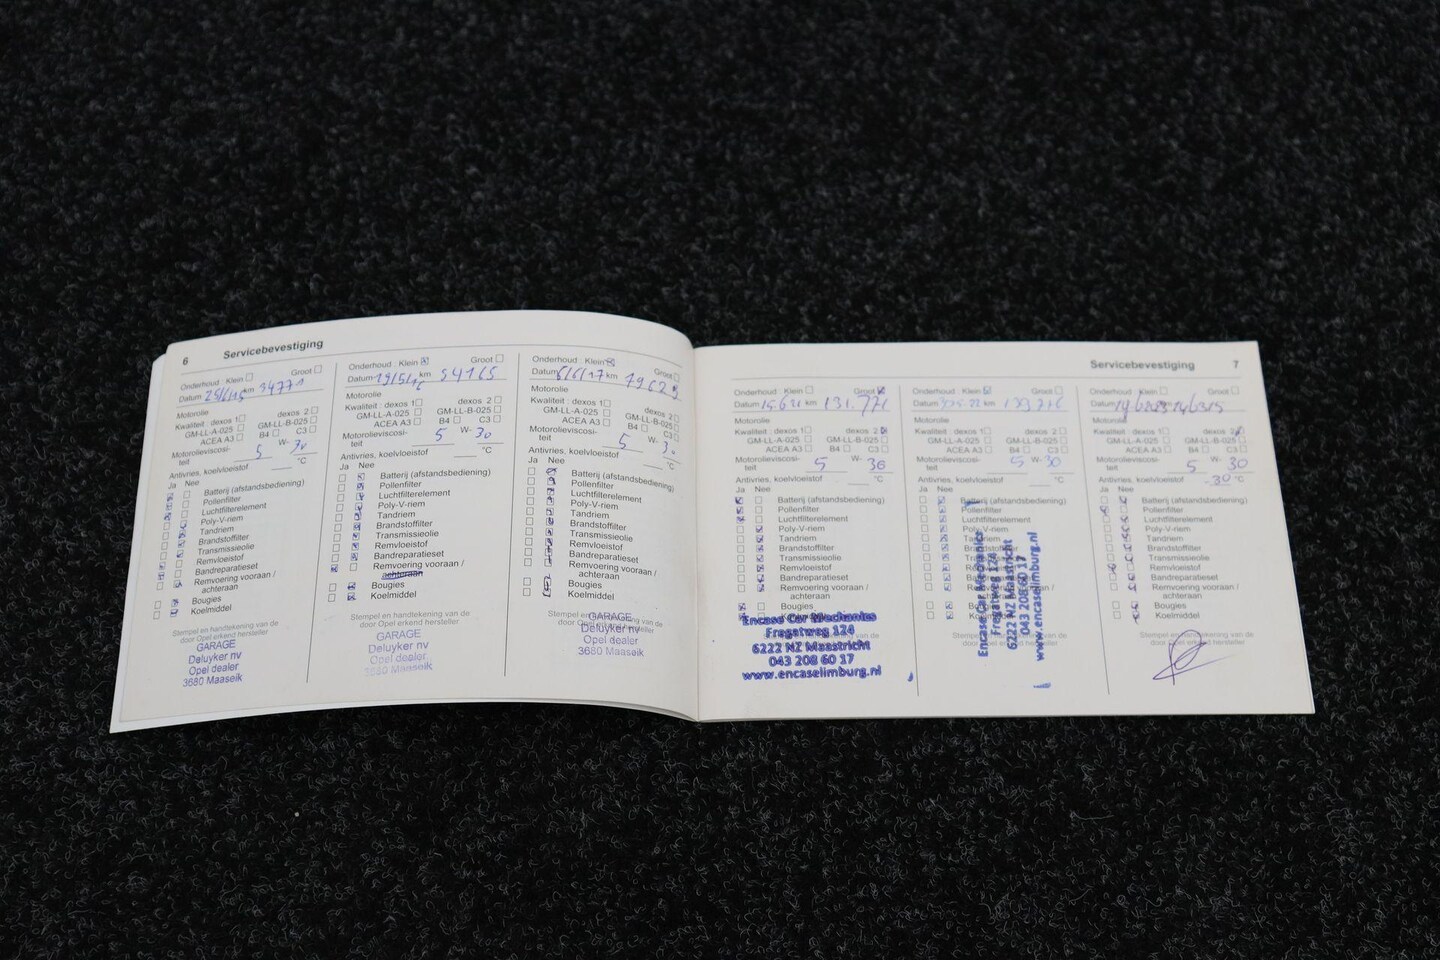 6 Servicebevestiging
Onderhoud : Klein Groot
Datum 25/6/15 km 34771
Motorolie
Kwaliteit : dexos 1 dexos 2
GM-LL-A-025 GM-LL-B-025
ACEA A3 B4 C3
Motorolieviscosi-
teit 5 W- 30
Antivries, koelvloeistof °C
Ja Nee
Batterij (afstandsbediening)
Pollenfilter
Luchtfilterelement
Poly-V-riem
Tandriem
Brandstoffilter
Transmissieolie
Remvloeistof
Bandreparatieset
Remvoering vooraan /
achteraan
Bougies
Koelmiddel
Stempel en handtekening van de
door Opel erkend hersteller
GARAGE
Deluyker nv
Opel dealer
3680 Maaseik
Onderhoud : Klein Groot
Datum 19/5/16 km 54165
Motorolie
Kwaliteit : dexos 1 dexos 2
GM-LL-A-025 GM-LL-B-025
ACEA A3 B4 C3
Motorolieviscosi-
teit 5 W- 30
Antivries, koelvloeistof °C
Ja Nee
Batterij (afstandsbediening)
Pollenfilter
Luchtfilterelement
Poly-V-riem
Tandriem
Brandstoffilter
Transmissieolie
Remvloeistof
Bandreparatieset
Remvoering vooraan /
achteraan
Bougies
Koelmiddel
Stempel en handtekening van de
door Opel erkend hersteller
GARAGE
Deluyker nv
Opel dealer
3680 Maaseik
Onderhoud : Klein Groot
Datum 6/6/17 km
Motorolie
Kwaliteit : dexos 1 dexos 2
GM-LL-A-025 GM-LL-B-025
ACEA A3 B4 C3
Motorolieviscosi-
teit 5 W- 30
Antivries, koelvloeistof °C
Ja Nee
Batterij (afstandsbediening)
Pollenfilter
Luchtfilterelement
Poly-V-riem
Tandriem
Brandstoffilter
Transmissieolie
Remvloeistof
Bandreparatieset
Remvoering vooraan /
achteraan
Bougies
Koelmiddel
Stempel en handtekening van de
door Opel erkend hersteller
GARAGE
Deluyker nv
Opel dealer
3680 Maaseik
Servicebevestiging 7
Onderhoud : Klein Groot
Datum 15.6.21 km 131.771
Motorolie
Kwaliteit : dexos 1 dexos 2
GM-LL-A-025 GM-LL-B-025
ACEA A3 B4 C3
Motorolieviscosi-
teit 5 W- 30
Antivries, koelvloeistof °C
Ja Nee
Batterij (afstandsbediening)
Pollenfilter
Luchtfilterelement
Poly-V-riem
Tandriem
Brandstoffilter
Transmissieolie
Remvloeistof
Bandreparatieset
Remvoering vooraan /
achteraan
Bougies
Encase Car Mechanics
Fregatweg 124
6222 NZ Maastricht
043 208 60 17
www.encaselimburg.nl
Onderhoud : Klein Groot
Datum km
Motorolie
Kwaliteit : dexos 1 dexos 2
GM-LL-A-025 GM-LL-B-025
ACEA A3 B4 C3
Motorolieviscosi-
teit 5 W- 30
Antivries, koelvloeistof °C
Ja Nee
Batterij (afstandsbediening)
Pollenfilter
Luchtfilterelement
Poly-V-riem
Tandriem
Brandstoffilter
Transmissieolie
Remvloeistof
Bandreparatieset
Remvoering vooraan /
achteraan
Bougies
Encase Car Mechanics
Fregatweg 124
6222 NZ Maastricht
043 208 60 17
www.encaselimburg.nl
Onderhoud : Klein Groot
Datum
Motorolie
Kwaliteit : dexos 1 dexos 2
GM-LL-A-025 GM-LL-B-025
ACEA A3 B4 C3
Motorolieviscosi-
teit 5 W- 30
Antivries, koelvloeistof -30 °C
Ja Nee
Batterij (afstandsbediening)
Pollenfilter
Luchtfilterelement
Poly-V-riem
Tandriem
Brandstoffilter
Transmissieolie
Remvloeistof
Bandreparatieset
Remvoering vooraan /
achteraan
Bougies
Koelmiddel
Stempel en handtekening van de
door Opel erkend hersteller